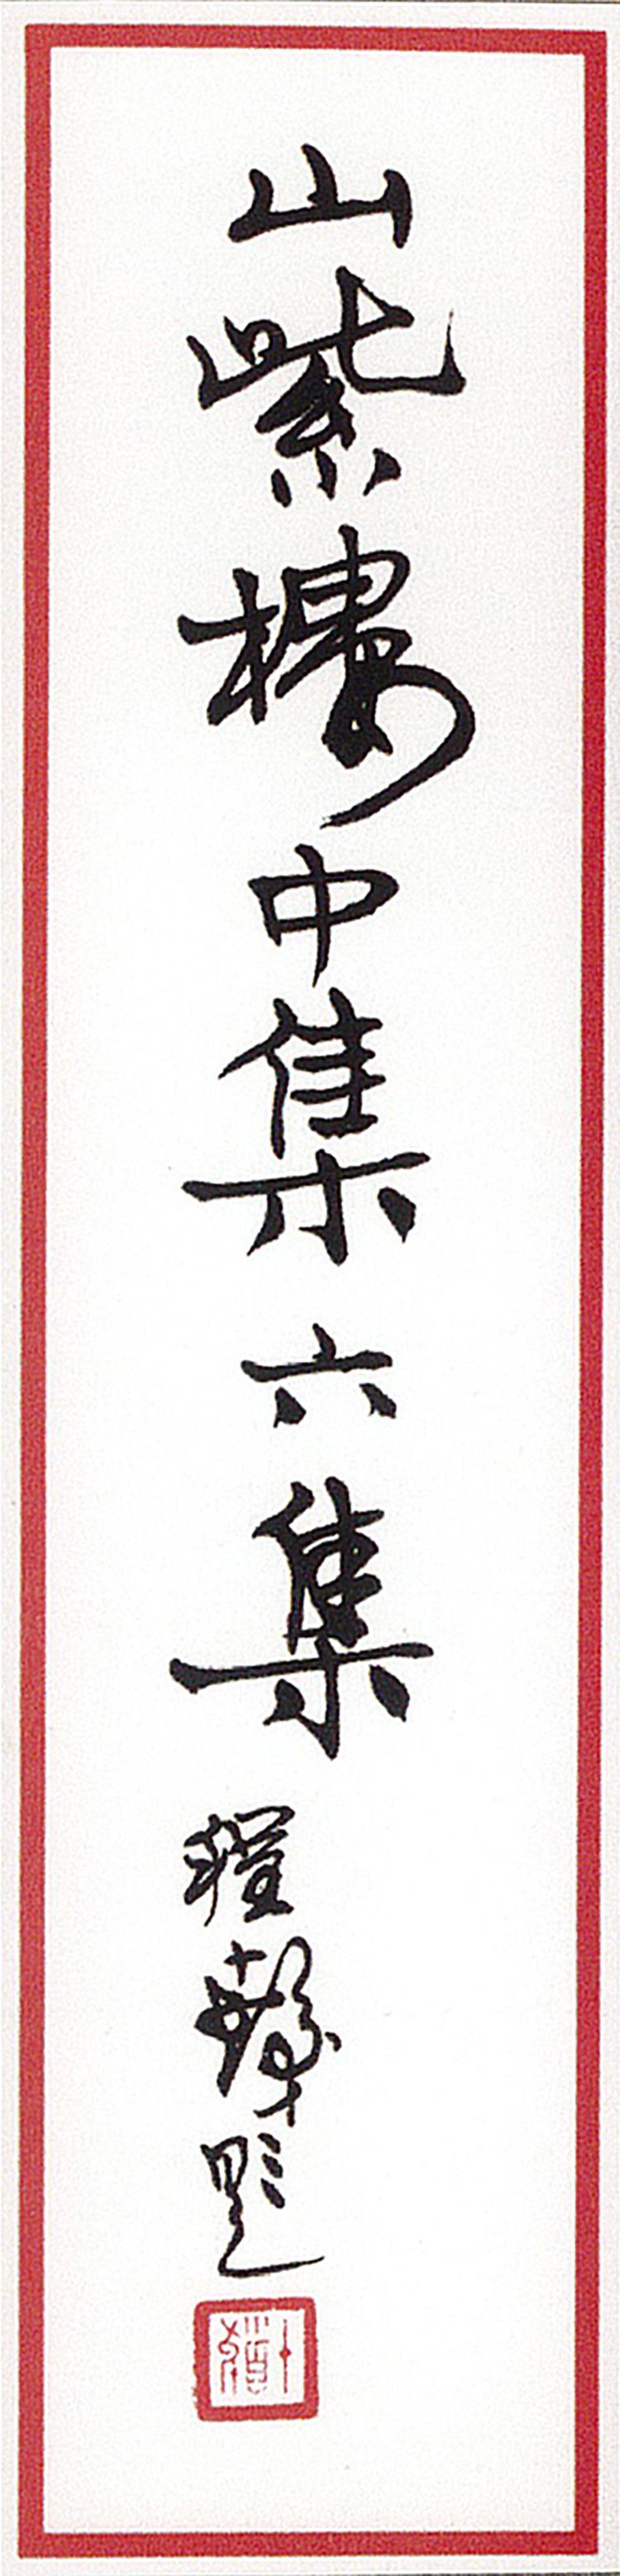 山紫樓中集六集
程十髮題